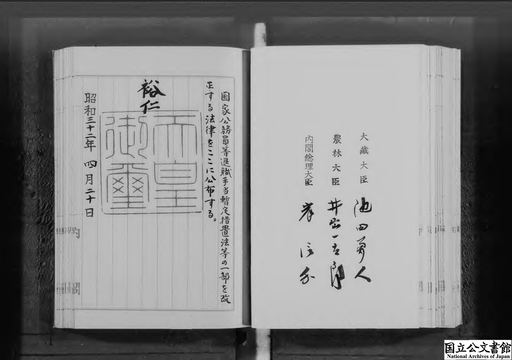 大藏大臣 池田勇人
農林大臣 井出一太郎
内閣總理大臣 岸信介
国家公務員等退職手当暫定措置法等の一部を改
正する法律をここに公布する。
裕仁
天皇
御璽
昭和三十二年四月二十日
国立公文書館
National Archives of Japan